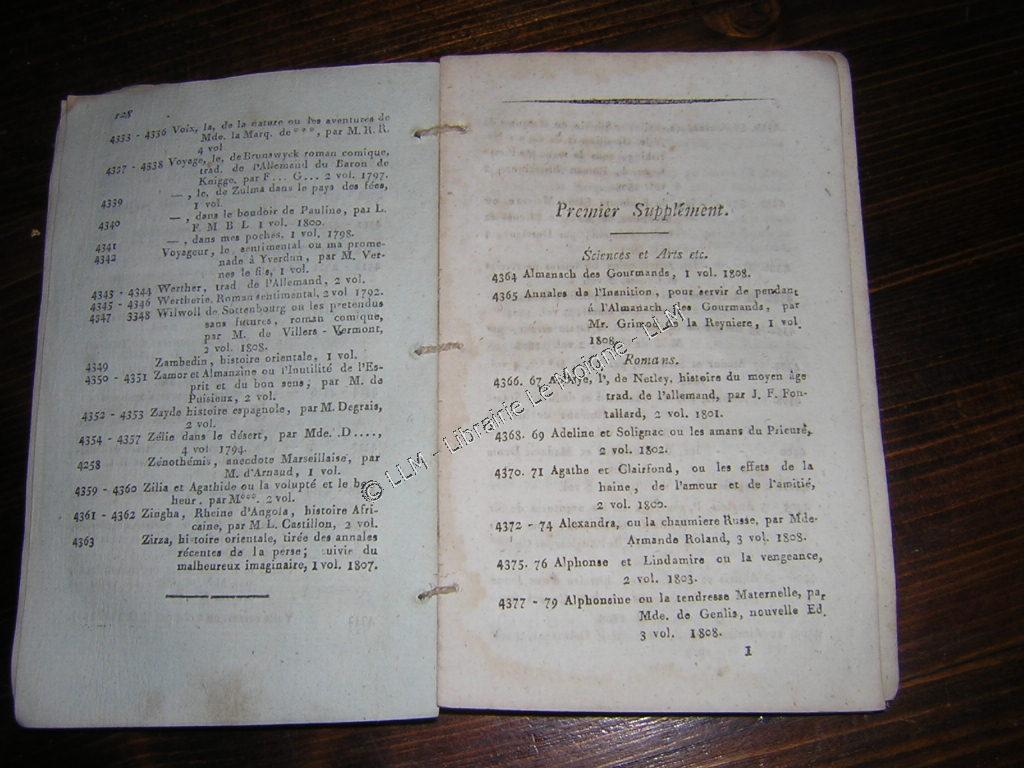 128
4333 - 4336 Voix, la, de la nature ou les aventures de
Mde. la Marq. de ***, par M. R. R.
4 vol
4327 - 4338 Voyage, le, de Brunswyck roman comique,
trad. de l'Allemand du Baron de
Knigge, par F... G... 2 vol. 1797.
— , le, de Zulma dans le pays des fées,
4339
1 vol.
— , dans le boudoir de Pauline, par L.
4340
F. M B L. 1 vol. 1800.
4341 — , dans mes poches, 1 vol. 1798.
4342 Voyageur, le, sentimental ou ma prome-
nade à Yverdun, par M. Ver-
nes le fils, 1 vol.
4343 - 4344 Werther, trad de l'Allemand, 2 vol.
4345 - 4346 Wertherie, Roman sentimental, 2 vol 1792.
4347 3348 Wilwoll de Sottenbourg ou les pretendus
sans futures, roman comique,
par M. de Villers - Vermont,
2 vol. 1808.
4349 Zambedin, histoire orientale, 1 vol.
4350 - 4351 Zamor et Almanzine ou l'Inutilité de l'Es-
prit et du bon sens, par M. de
Puisieux, 2 vol.
4352 - 4353 Zayde histoire espagnole, par M. Degrais,
2 vol.
4354 - 4357 Zélie dans le désert, par Mde. .D....,
4 vol 1794.
4258 Zénothémis, anecdote Marseillaise, par
M. d'Arnaud, 1 vol.
4359 - 4360 Zilia et Agathide ou la volupté et le bon
heur, par M°°°. 2 vol.
4361 - 4362 Zingha, Rheine d'Angola, histoire Afri-
caine, par M L. Castillon, 2 vol.
4363 Zirza, histoire orientale, tirée des annales
récentes de la perse; suivie du
malheureux imaginaire, 1 vol. 1807.
Premier Supplément.
Sciences et Arts etc.
4364 Almanach des Gourmands, 1 vol. 1808.
4365 Annales de l'Inanition, pour servir de pendant
à l'Almanach des Gourmands, par
Mr. Grimod de la Reyniere, 1 vol.
1808.
Romans.
4366. 67 Abbaye, l', de Netley, histoire du moyen âge
trad. de l'allemand, par J. F. Fon-
tallard, 2 vol. 1801.
4368. 69 Adeline et Solignac ou les amans du Prieuré,
2 vol. 1802.
4370. 71 Agathe et Clairfond, ou les effets de la
haine, de l'amour et de l'amitié,
2 vol. 1800.
4372 - 74 Alexandra, ou la chaumiere Russe, par Mde-
Armande Roland, 3 vol. 1808.
4375. 76 Alphonse et Lindamire ou la vengeance,
2 vol. 1803.
4377 - 79 Alphonsine ou la tendresse Maternelle, par
Mde. de Genlis, nouvelle Ed.
3 vol. 1808.
1
© LLM - Librairie Le Moigne - LLM